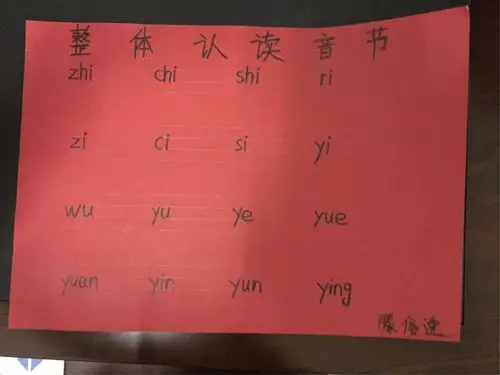 整体认读音节
zhi chi shi ri
zi ci si yi
wu yu ye yue
yuan yin yun ying